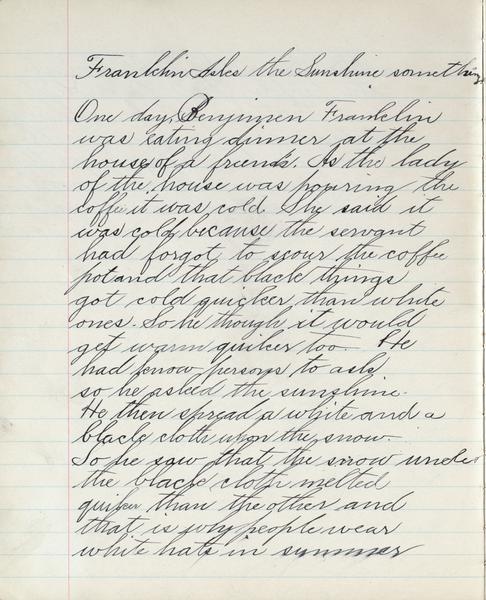 Franklin Asks the Sunshine something
One day, Benjimen Franklin
was eating dinner at the
house of a friends. As the lady
of the house was powering the
coffee it was cold. She said it
was cold because the servant
had forgot to scour the coffee
pot and that black things
got cold quicker than white
ones. So he though it would
get warm quiker too. He
had know persons to ask
so he asked the sunshine.
He then spread a white and a
black cloth upon the snow.
So he saw that the snow under
the black cloth melted
quiker than the other and
that is why people wear
white hats in summer